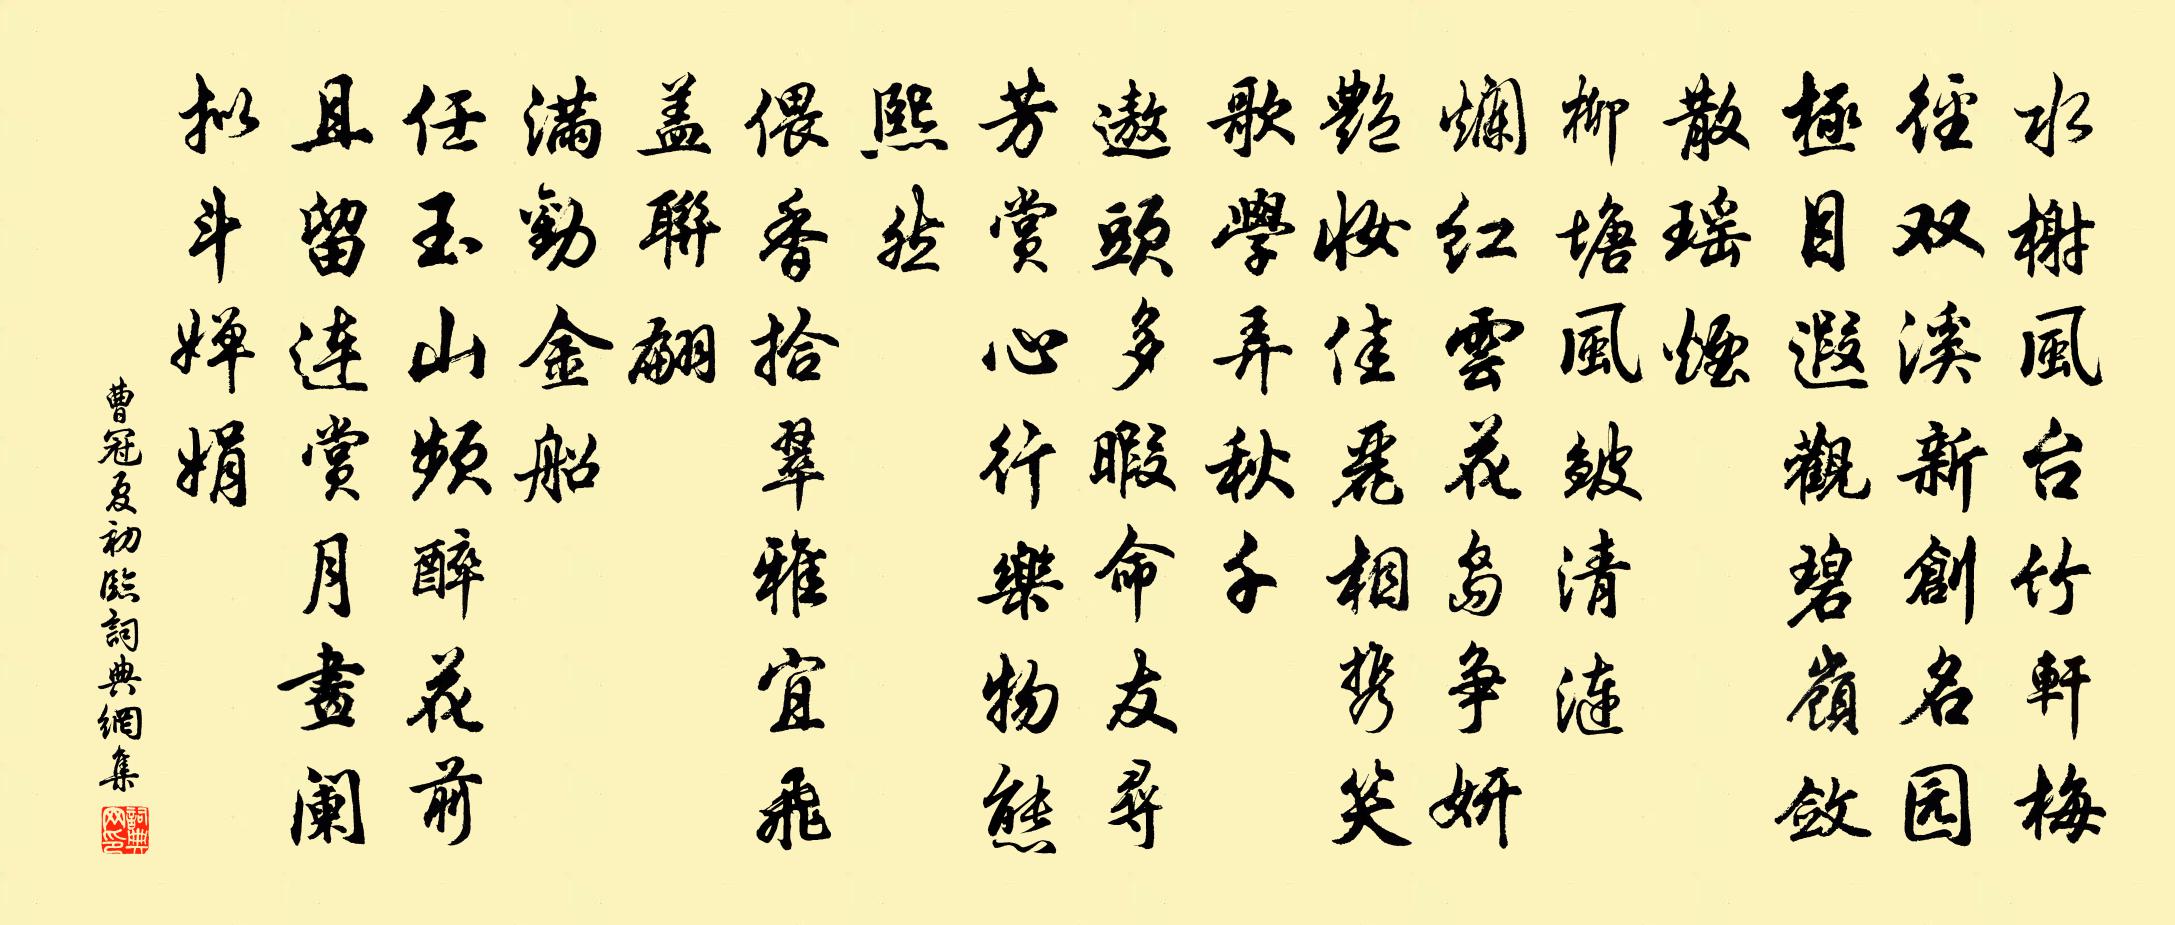 水榭風台竹軒梅
徑双溪新創名园
極目遐觀碧嶺斂
散瑶煙
柳塘風皴清漣
爛红雲花島争妍
艷妝佳麗相携笑
歌學弄秋千
遨頭多暇命友尋
芳赏心行樂物態
熙然
偎香拾翠雅宜飛
盖聯翩
满勸金船
任玉山頻醉花前
且留连赏月畫阑
拟斗婵娟
曹冠夏初臨詞典網集
詞典网印